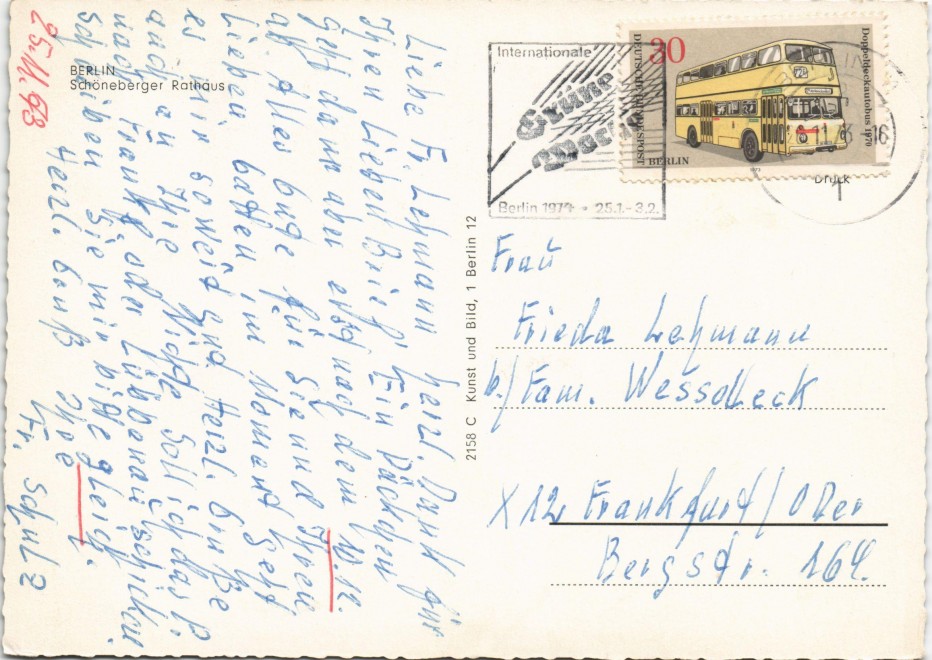 BERLIN
Schöneberger Rathaus
25.11.73
Liebe Fr. Lehmann herzl. Dank für
Ihren Lieben Brief. Ein Päckchen
geht dann aber erst nach dem 10.12.
ab. Alles Gute für Sie und Ihren
Lieben
im Moment geht
es mir soweit gut. Herzl. Grüße
auch an Ihre Nichte. Soll ich das P.
nach Frankf. oder Lübbenau schicken.
Schreiben Sie mir bitte gleich.
Herzl. Gruß Ihre
Fr. Schulz
2158 C Kunst und Bild, 1 Berlin 12
Internationale
Grüne
Woche
Berlin 1974 - 25.1.-3.2.
30
DEUTSCHE BUNDESPOST
BERLIN
Doppeldeckautobus 1970
1973
Druck
Frau
Frieda Lehmann
b./Fam. Wessolleck
X 12 Frankfurt/Oder
Bergstr. 164.